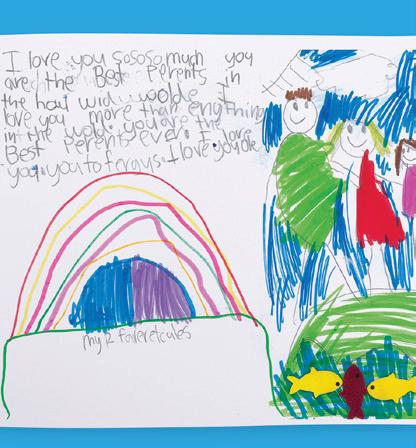 I love you sososo much you
are the Best Perents in
the howl wid wolde I
love you more than enything
in the wold. you are the
Best Perents ever. I love
you. you to fergus. I love you ole
my 2 faveretcules